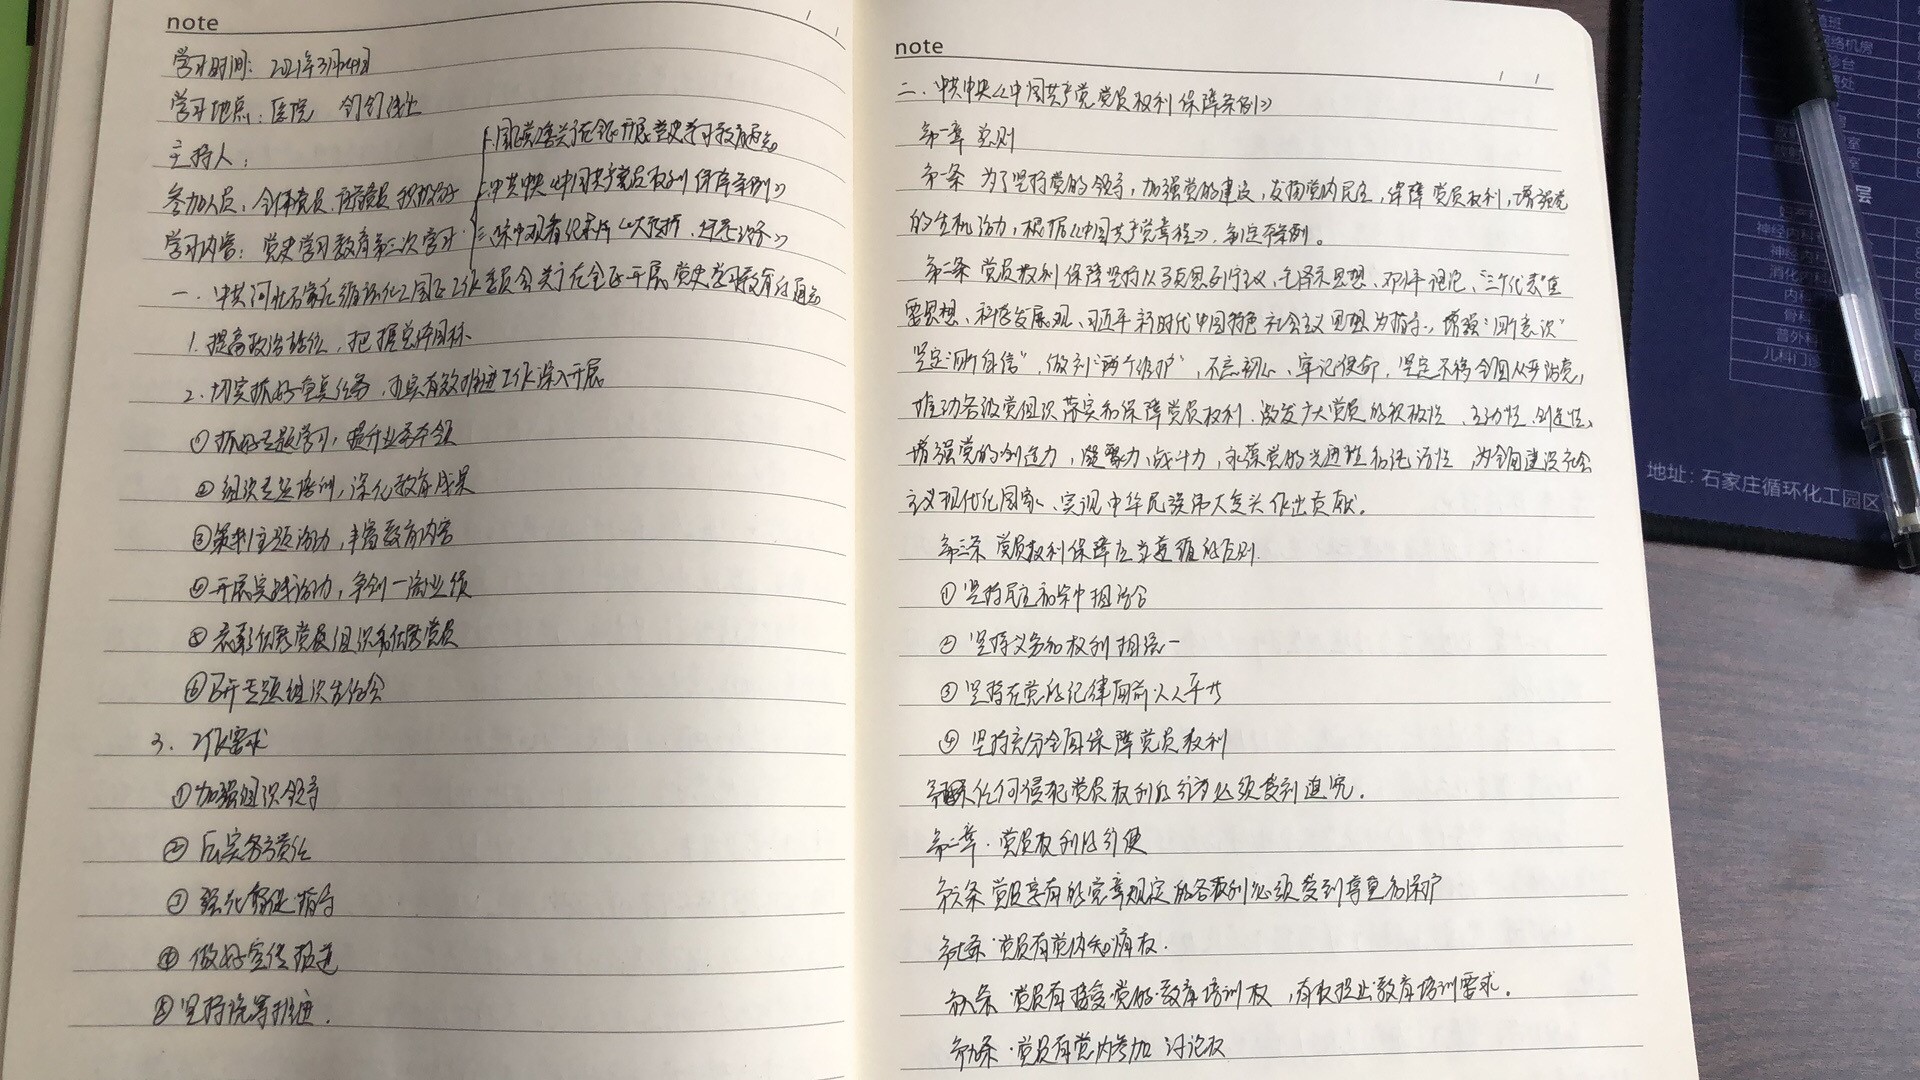 note
学习时间：2021年3月24日
学习地点：医院 钉钉线上
主持人：
参加人员：全体党员、预备党员、积极分子
学习内容：党史学习教育第三次学习
1.园区党工委关于在全区开展党史学习教育通知
2.中共中央《中国共产党党员权利保障条例》
三.集中观看纪录片
一．中共河北石家庄循环化工园区工作委员会关于在全区开展党史学习教育的通知
1.提高政治站位，把握总体目标
2.切实抓好重点任务，切实有效推进工作深入开展
①抓好专题学习，提升业务本领
②组织专题培训，深化教育成果
③策划主题活动，丰富教育内容
④开展实践活动，争创一流业绩
⑤表彰优秀党员组织和优秀党员
⑥召开专题组织生活会
3．工作要求
①加强组织领导
②压实各方责任
③强化督促指导
④做好宣传报道
⑤坚持统筹推进．
note
二．中共中央《中国共产党党员权利保障条例》
第一章 总则
第一条 为了坚持党的领导，加强党的建设，发扬党内民主，保障党员权利，增强党
的生机活力，根据《中国共产党章程》，制定本条例。
第二条 党员权利保障坚持以马克思列宁主义、毛泽东思想、邓小平理论、“三个代表”重
要思想、科学发展观、习近平新时代中国特色社会主义思想为指导，增强“四个意识”
坚定“四个自信”，做到“两个维护”，不忘初心、牢记使命，坚定不移全面从严治党，
推动各级党组织落实和保障党员权利，激发广大党员的积极性、主动性、创造性，
增强党的创造力，凝聚力，战斗力，永葆党的先进性和纯洁性，为全面建设社会
主义现代化国家、实现中华民族伟大复兴作出贡献．
第三条 党员权利保障应当遵循的原则．
①坚持民主和集中相结合
②坚持义务和权利相统一
③坚持在党的纪律面前人人平等
④坚持充分全面保障党员权利
第四条 任何侵犯党员权利的行为必须受到追究．
第二章．党员权利的行使
第六条 党员享有的党章规定的各权利必须受到尊重和保护
第七条．党员有党内知情权．
第八条．党员有接受党的教育培训权，有权提出教育培训要求．
第九条．党员有党内参加讨论权
神经内科
消化内科
内科
骨科
普外科
儿科门诊
层
地址：石家庄循环化工园区